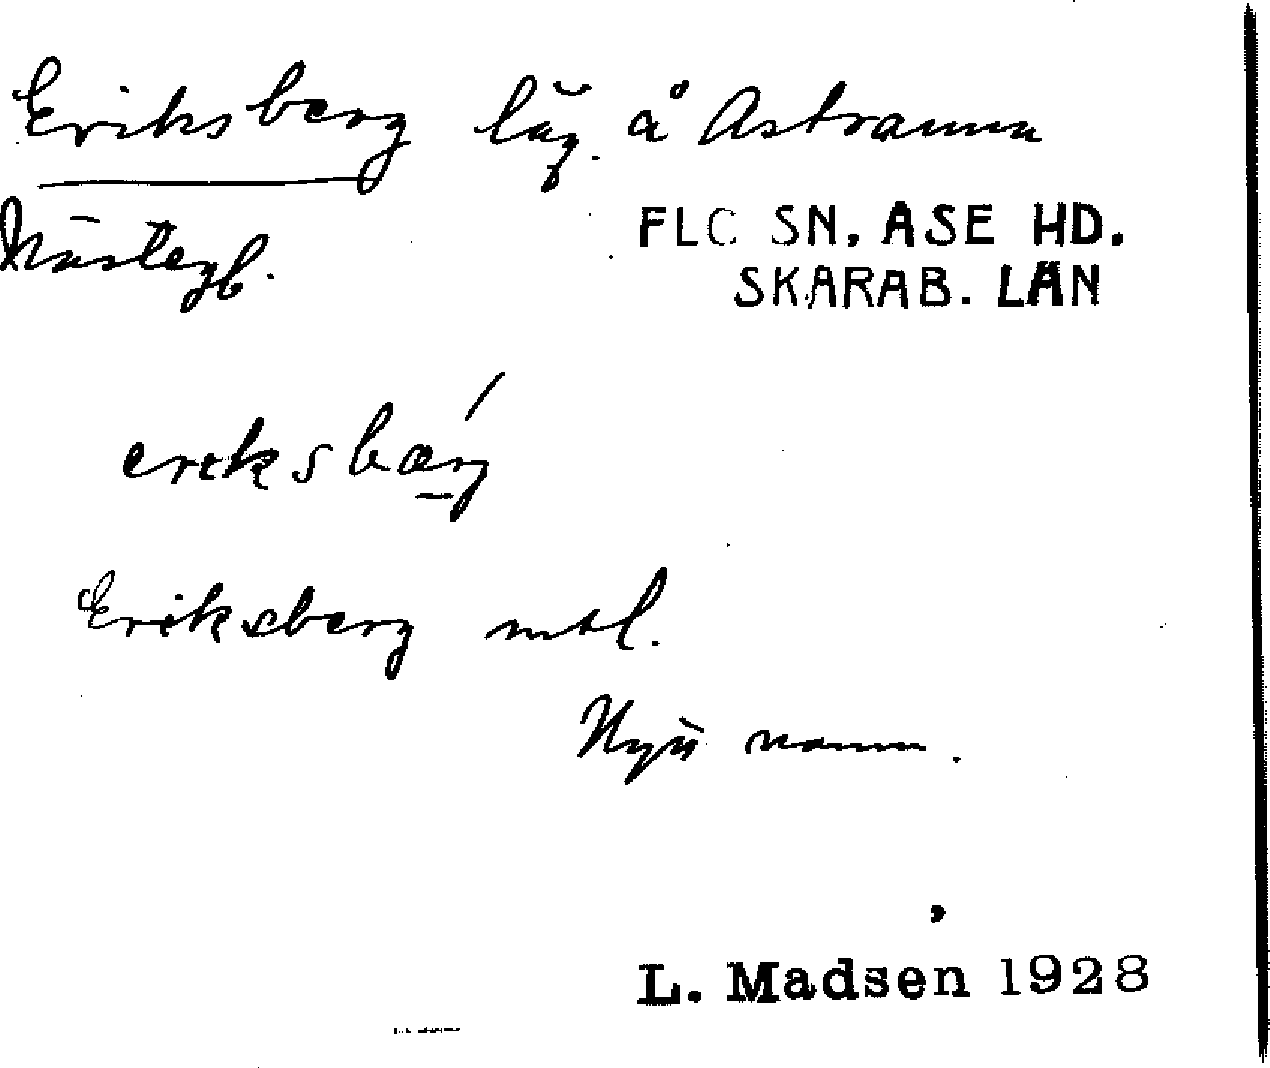 Eriksberg läg. å Astranna
Mästegb.
FLO SN. ÅSE HD.
SKARAB. LÄN
eriksbærg
Eriksberg mtl.
namn.
L. Madsen 1928